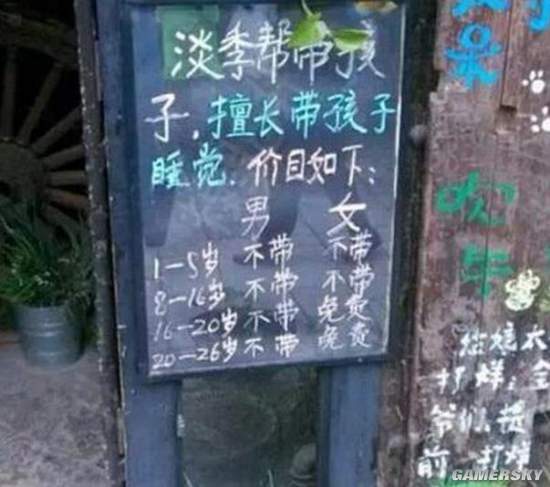 淡季帮带孩
子,擅长带孩子
睡觉.价目如下:
男 女
1-5岁 不带 不带
8-16岁 不带 不带
16-20岁 不带 免费
20-26岁 不带 免费
打烊,全
前 打烊
GAMERSKY